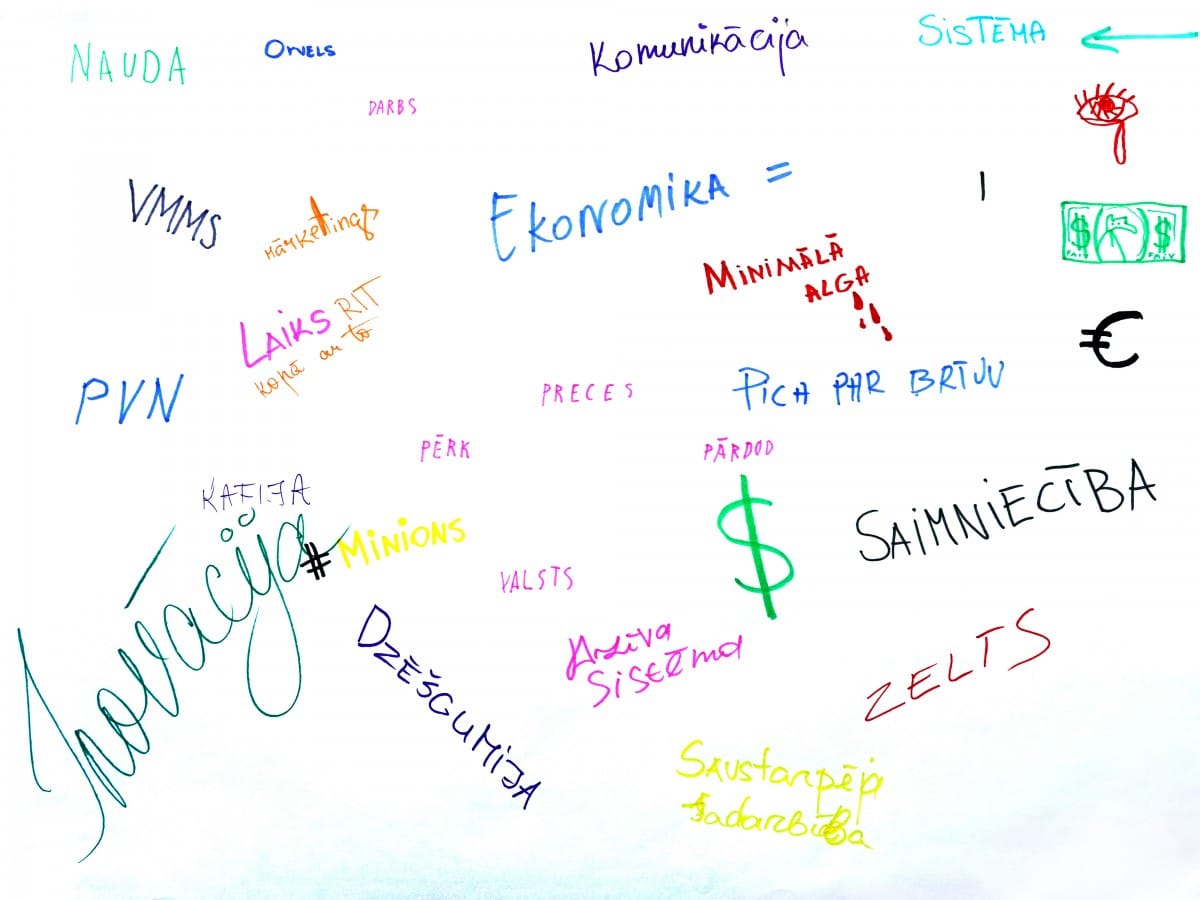 NAUDA
ORVELS
Komunikācija
SiSTĒMA
DARBS
VMMS
mārketings
EKONOMiKA =
MiNiMĀLĀ
ALGA
$ $
LAiKS RIT
kopā ar to
€
PVN
PRECES
PiCA PAR BRĪVU
PĒRK
PĀRDOD
KAFIJA
#MiNiONS
$
SAiMNiECĪBA
VALSTS
Inovācija
DZĒŠGUMIJA
Sistēma
ZELTS
Savstarpēja
sadarbība